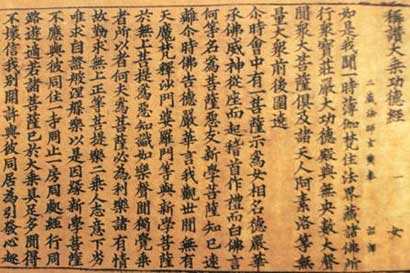 稱讚大乘功德經 一 女
三藏法師玄奘奉 詔譯
如是我聞一時薄伽梵住法界藏諸佛所
行眾寶莊嚴大功德殿與無央數大聲
聞眾大菩薩俱及諸天人阿素洛等無
量大眾前後圍遶
尒時會中有一菩薩示為女相名德嚴華
承佛威神從座而起稽首作禮而白佛言
何等名為菩薩惡友新學菩薩知已速
離尒時佛告德嚴華言我觀世間無有
天魔梵釋沙門婆羅門等與新學菩薩
於無上菩提為惡知識如樂聲聞獨覺乘
者所以者何夫為菩薩必為利樂諸有情
故勤求無上正等菩提樂二乘人志意下劣
唯求自證般涅槃樂以是因緣新學菩薩
不應與彼同住一寺同止一房同處經行同
路遊適若諸菩薩已於大乘具足多聞得
不壞信我別開許與彼同居為引發心趣